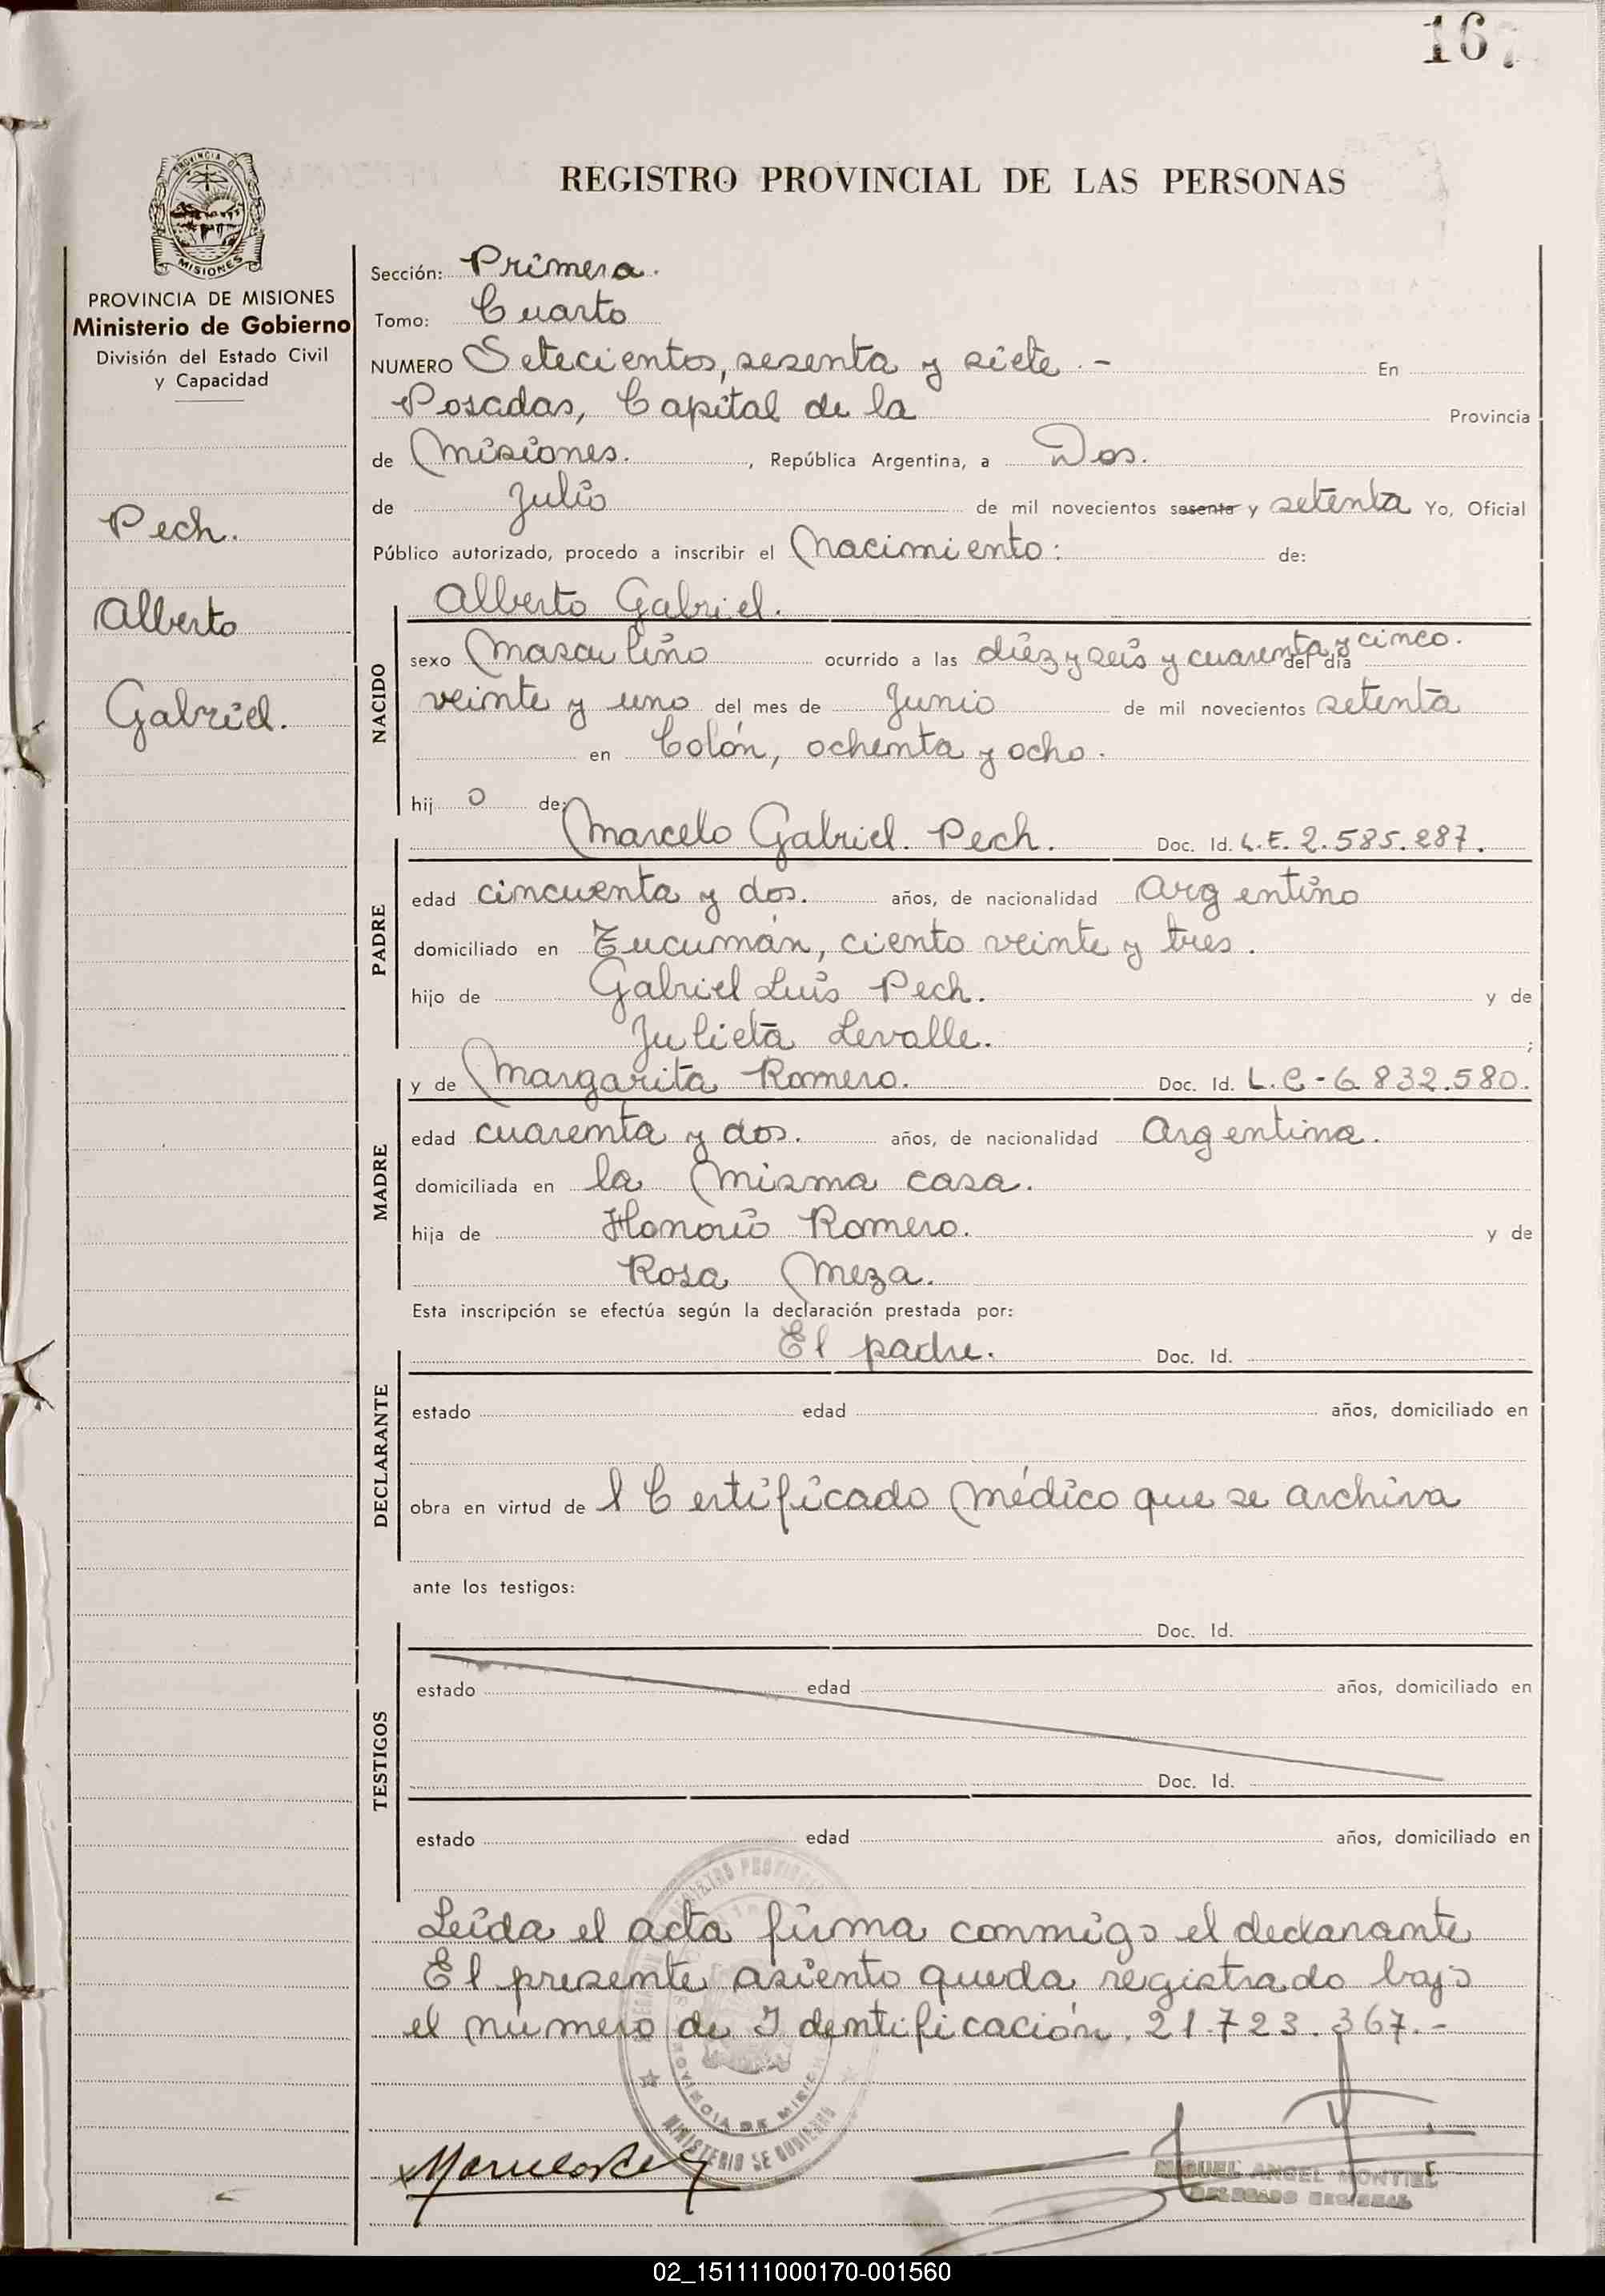 16
REGISTRO PROVINCIAL DE LAS PERSONAS
PROVINCIA DE MISIONES
Ministerio de Gobierno
División del Estado Civil
y Capacidad
Pech.
Alberto
Gabriel.
Sección: Primera.
Tomo: Cuarto
NUMERO Setecientos, sesenta y siete.- En
Posadas, Capital de la Provincia
de Misiones. , República Argentina, a Dos.
de Julio de mil novecientos sesenta y setenta Yo, Oficial
Público autorizado, procedo a inscribir el Nacimiento: de:
Alberto Gabriel.
NACIDO
sexo Masculino ocurrido a las diez y seis y cuarenta y cinco. del día
veinte y uno del mes de Junio de mil novecientos setenta
en Colón, ochenta y ocho.
hij o de:
PADRE
Marcelo Gabriel. Pech. Doc. Id. L.E. 2.585.287.
edad cincuenta y dos. años, de nacionalidad Argentino
domiciliado en Tucumán, ciento veinte y tres.
hijo de Gabriel Luis Pech. y de
Julieta Levalle. ;
MADRE
y de Margarita Romero. Doc. Id. L.C-6.832.580.
edad cuarenta y dos. años, de nacionalidad Argentina.
domiciliada en la misma casa.
hija de Honorio Romero. y de
Rosa Meza.
Esta inscripción se efectúa según la declaración prestada por:
DECLARANTE
El padre. Doc. Id.
estado edad años, domiciliado en
obra en virtud de l Certificado Médico que se archiva
ante los testigos:
TESTIGOS
Doc. Id.
estado edad años, domiciliado en
Doc. Id.
estado edad años, domiciliado en
Leida el acta firma conmigo el declarante
El presente asiento queda registrado bajo
el numero de Identificación. 21.723.367.-
MIGUEL ANGEL MONTIEL
DELEGADO REGIONAL
02_151111000170-001560